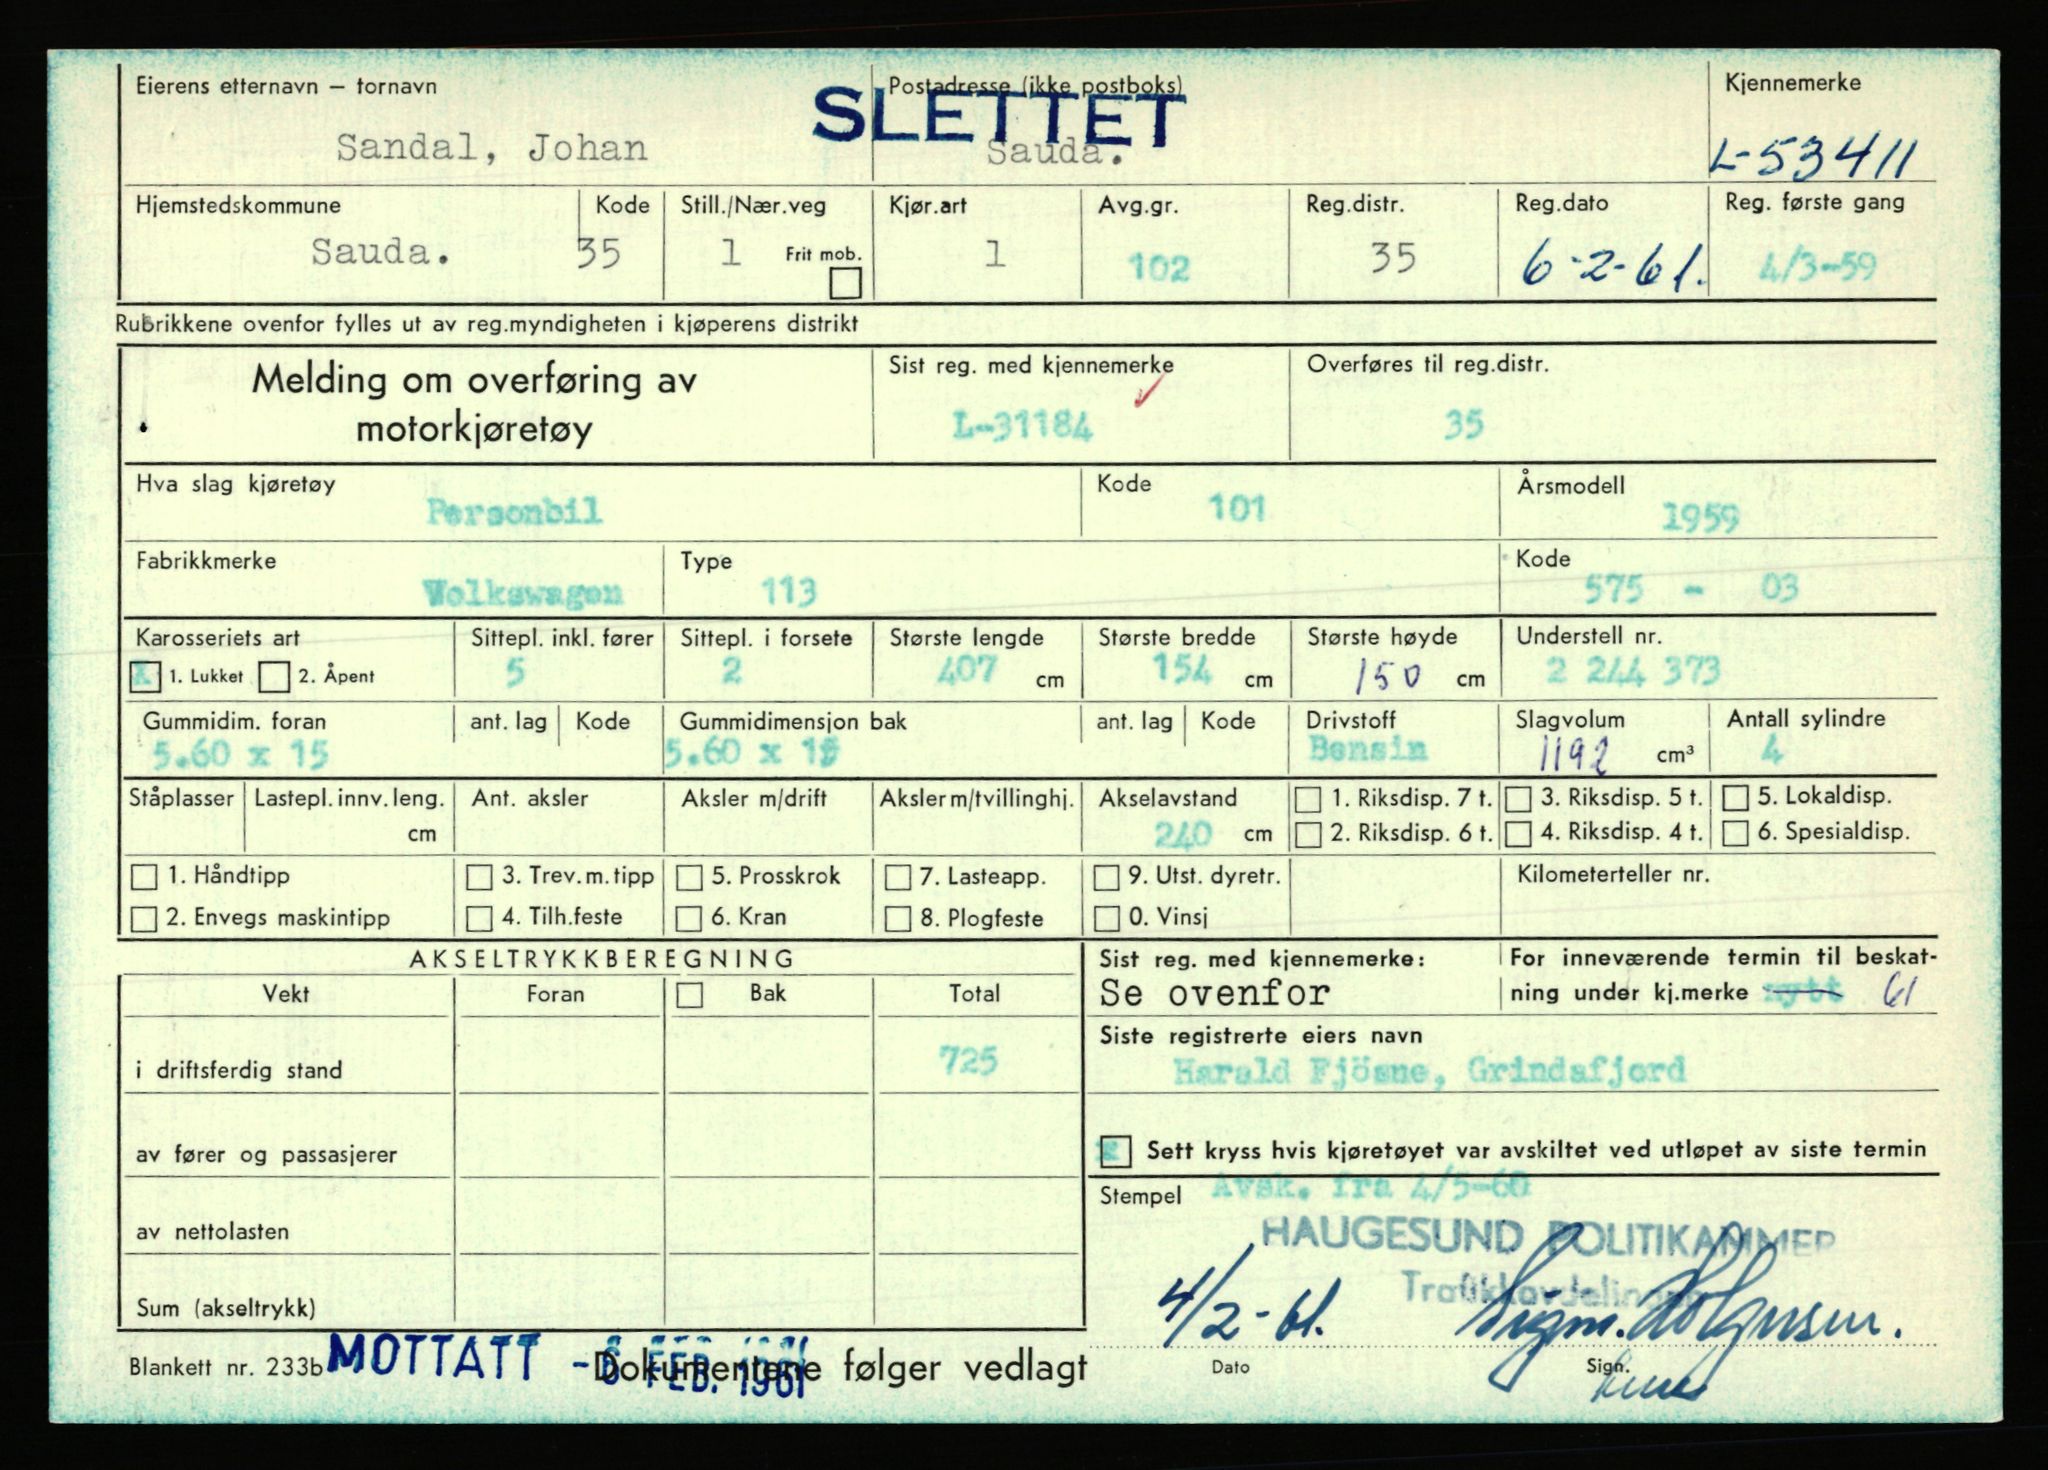 Eierens etternavn – fornavn Postadresse (ikke postboks) Kjennemerke
SLETTET
Sandal, Johan Sauda. L-53411
Hjemstedskommune Kode Still./Nær.veg Kjør.art Avg.gr. Reg.distr. Reg.dato Reg. første gang
Sauda. 35 1 Frit mob. 1 102 35 6-2-61. 4/3-59
Rubrikkene ovenfor fylles ut av reg.myndigheten i kjøperens distrikt
Melding om overføring av Sist reg. med kjennemerke Overføres til reg.distr.
motorkjøretøy L-31184 35
Hva slag kjøretøy Kode Årsmodell
Personbil 101 1959
Fabrikkmerke Type Kode
Volkswagen 113 575 - 03
Karosseriets art Sittepl. inkl. fører Sittepl. i forsete Største lengde Største bredde Største høyde Understell nr.
X 1. Lukket 2. Åpent 5 2 407 cm 154 cm 150 cm 2 244 373
Gummidim. foran ant. lag Kode Gummidimensjon bak ant. lag Kode Drivstoff Slagvolum Antall sylindre
5.60 x 15 5.60 x 15 Bensin 1192 cm³ 4
Ståplasser Lastepl. innv. leng. Ant. aksler Aksler m/drift Aksler m/tvillinghj. Akselavstand 1. Riksdisp. 7 t. 3. Riksdisp. 5 t. 5. Lokaldisp.
cm 240 cm 2. Riksdisp. 6 t. 4. Riksdisp. 4 t. 6. Spesialdisp.
1. Håndtipp 3. Trev.m.tipp 5. Prosskrok 7. Lasteapp. 9. Utst. dyretr. Kilometerteller nr.
2. Envegs maskintipp 4. Tilh.feste 6. Kran 8. Plogfeste 0. Vinsj
AKSELTRYKKBEREGNING Sist reg. med kjennemerke: For inneværende termin til beskat-
Vekt Foran Bak Total Se ovenfor ning under kj.merke nytt 61
Siste registrerte eiers navn
i driftsferdig stand 725 Harald Fjösne, Grindafjord
av fører og passasjerer x Sett kryss hvis kjøretøyet var avskiltet ved utløpet av siste termin
Stempel Avsk. fra 4/5-60
av nettolasten HAUGESUND POLITIKAMMER
Trafikkavdelingen
Sum (akseltrykk) 4/2-61.
Blankett nr. 233b MOTTATT - 6 FEB. 1961 Dokumentene følger vedlagt Dato Sign.